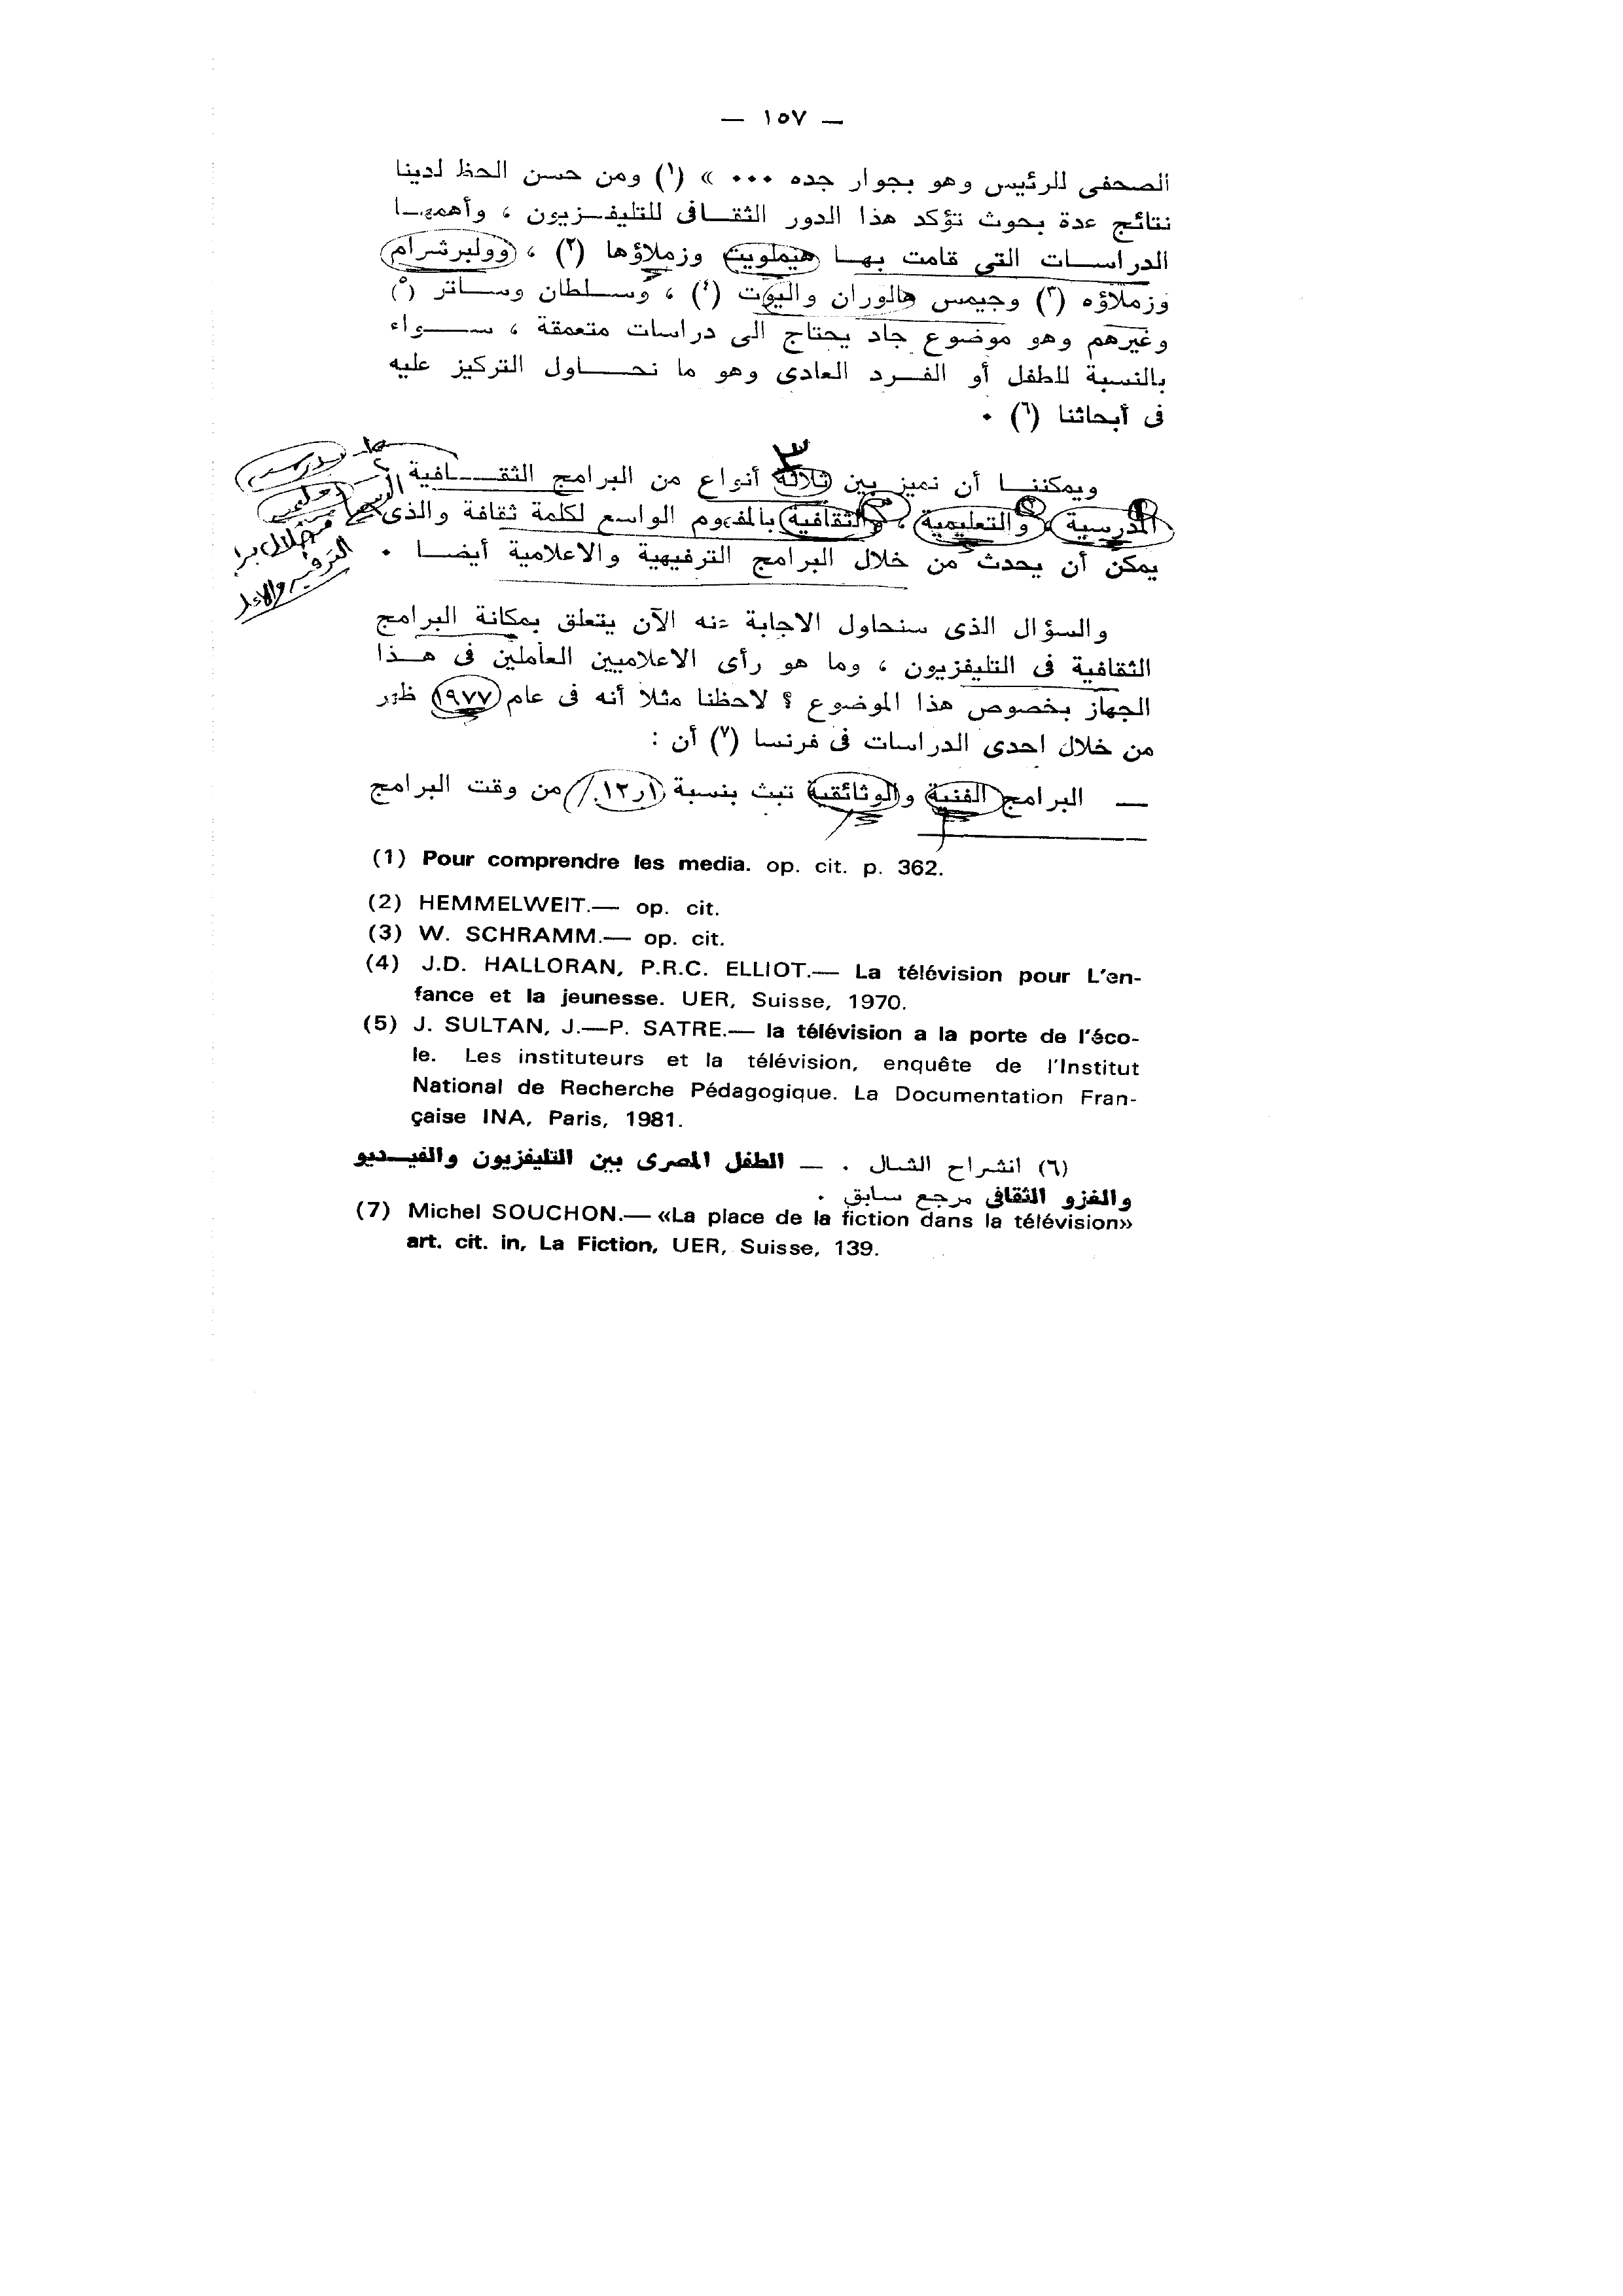 — ١٥٧ —
الصحفى للرئيس وهو بجوار جده ٠٠٠ » (١) ومن حسن الحظ لدينا
نتائج عدة بحوث تؤكد هذا الدور الثقافى للتليفزيون ، وأهمها
الدراسات التى قامت بها هيملويت وزملاؤها (٢) ، وولبرشرام
وزملاؤه (٣) وجيمس هالوران واليوت (٤) ، وسلطان وساتر (٥)
وغيرهم وهو موضوع جاد يحتاج الى دراسات متعمقة ، سواء
بالنسبة للطفل أو الفرد العادى وهو ما نحاول التركيز عليه
فى أبحاثنا (٦) ٠
٣
ويمكننا أن نميز بين ثلاثة أنواع من البرامج الثقافية :
المدرسية ، والتعليمية ، والثقافية بالمفهوم الواسع لكلمة ثقافة والذى
يمكن أن يحدث من خلال البرامج الترفيهية والاعلامية أيضا ٠
من خلال برا
الترفيه والاعلا
والسؤال الذى سنحاول الاجابة عنه الآن يتعلق بمكانة البرامج
الثقافية فى التليفزيون ، وما هو رأى الاعلاميين العاملين فى هذا
الجهاز بخصوص هذا الموضوع ؟ لاحظنا مثلا أنه فى عام ١٩٧٧ ظهر
من خلال احدى الدراسات فى فرنسا (٧) أن :
— البرامج الفنية والوثائقية تبث بنسبة ١ر١٢٪ من وقت البرامج
(1) Pour comprendre les media. op. cit. p. 362.
(2) HEMMELWEIT.— op. cit.
(3) W. SCHRAMM.— op. cit.
(4) J.D. HALLORAN, P.R.C. ELLIOT.— La télévision pour L'en-
fance et la jeunesse. UER, Suisse, 1970.
(5) J. SULTAN, J.—P. SATRE.— la télévision a la porte de l'éco-
le. Les instituteurs et la télévision, enquête de l'Institut
National de Recherche Pédagogique. La Documentation Fran-
çaise INA, Paris, 1981.
(٦) انشراح الشال . — الطفل المصرى بين التليفزيون والفيديو
والغزو الثقافى مرجع سابق .
(7) Michel SOUCHON.— «La place de la fiction dans la télévision»
art. cit. in, La Fiction, UER, Suisse, 139.